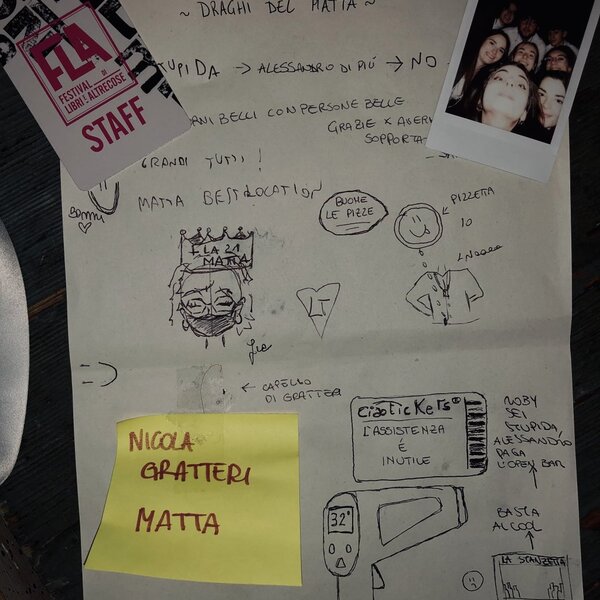 ~ DRAGHI DEL MATTA ~
FLA
FESTIVAL DI
LIBRI E ALTRECOSE
STAFF
TUPIDA → ALESSANDRO DI PIÚ → NO
ANI BELLI CON PERSONE BELLE
GRAZIE X AVERM
SOPPORTA
GRANDI TUTTI !
MATTA BEST LOCATION
BUONE
LE PIZZE
PIZZETTA
IO
FLA 21
MATTA
LT
← CAPELLO
DI GRATTERI
NICOLA
GRATTERI
MATTA
CiaoTicKeTs®
L'ASSISTENZA
É
INUTILE
NOBY
SEI
STUPIDA,
ALESSANDRO
PAGA
L'OPEN BAR
32°
BASTA
ALCOOL
LA STANZETTA